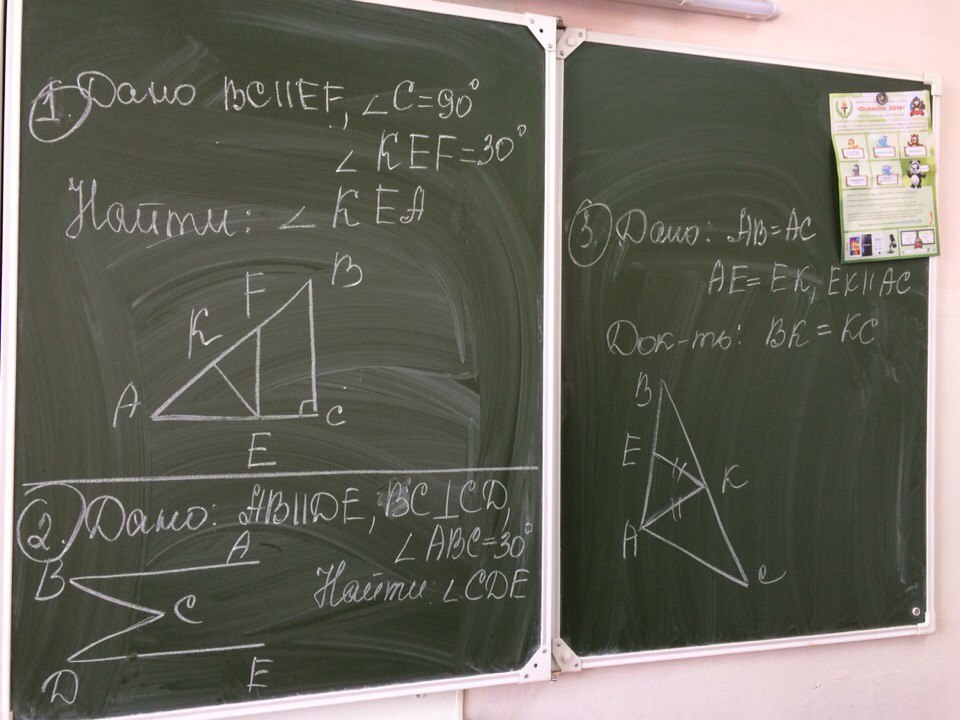 1. Дано BC||EF, ∠C=90°
∠KEF=30°
Найти: ∠KEA
B
F
K
A
C
E
2. Дано: AB||DE, BC⊥CD,
∠ABC=30°
Найти: ∠CDE
A
B
C
D
E
3. Дано: AB=AC
AE=EK, EK||AC
Док-ть: BK=KC
B
E
K
A
C